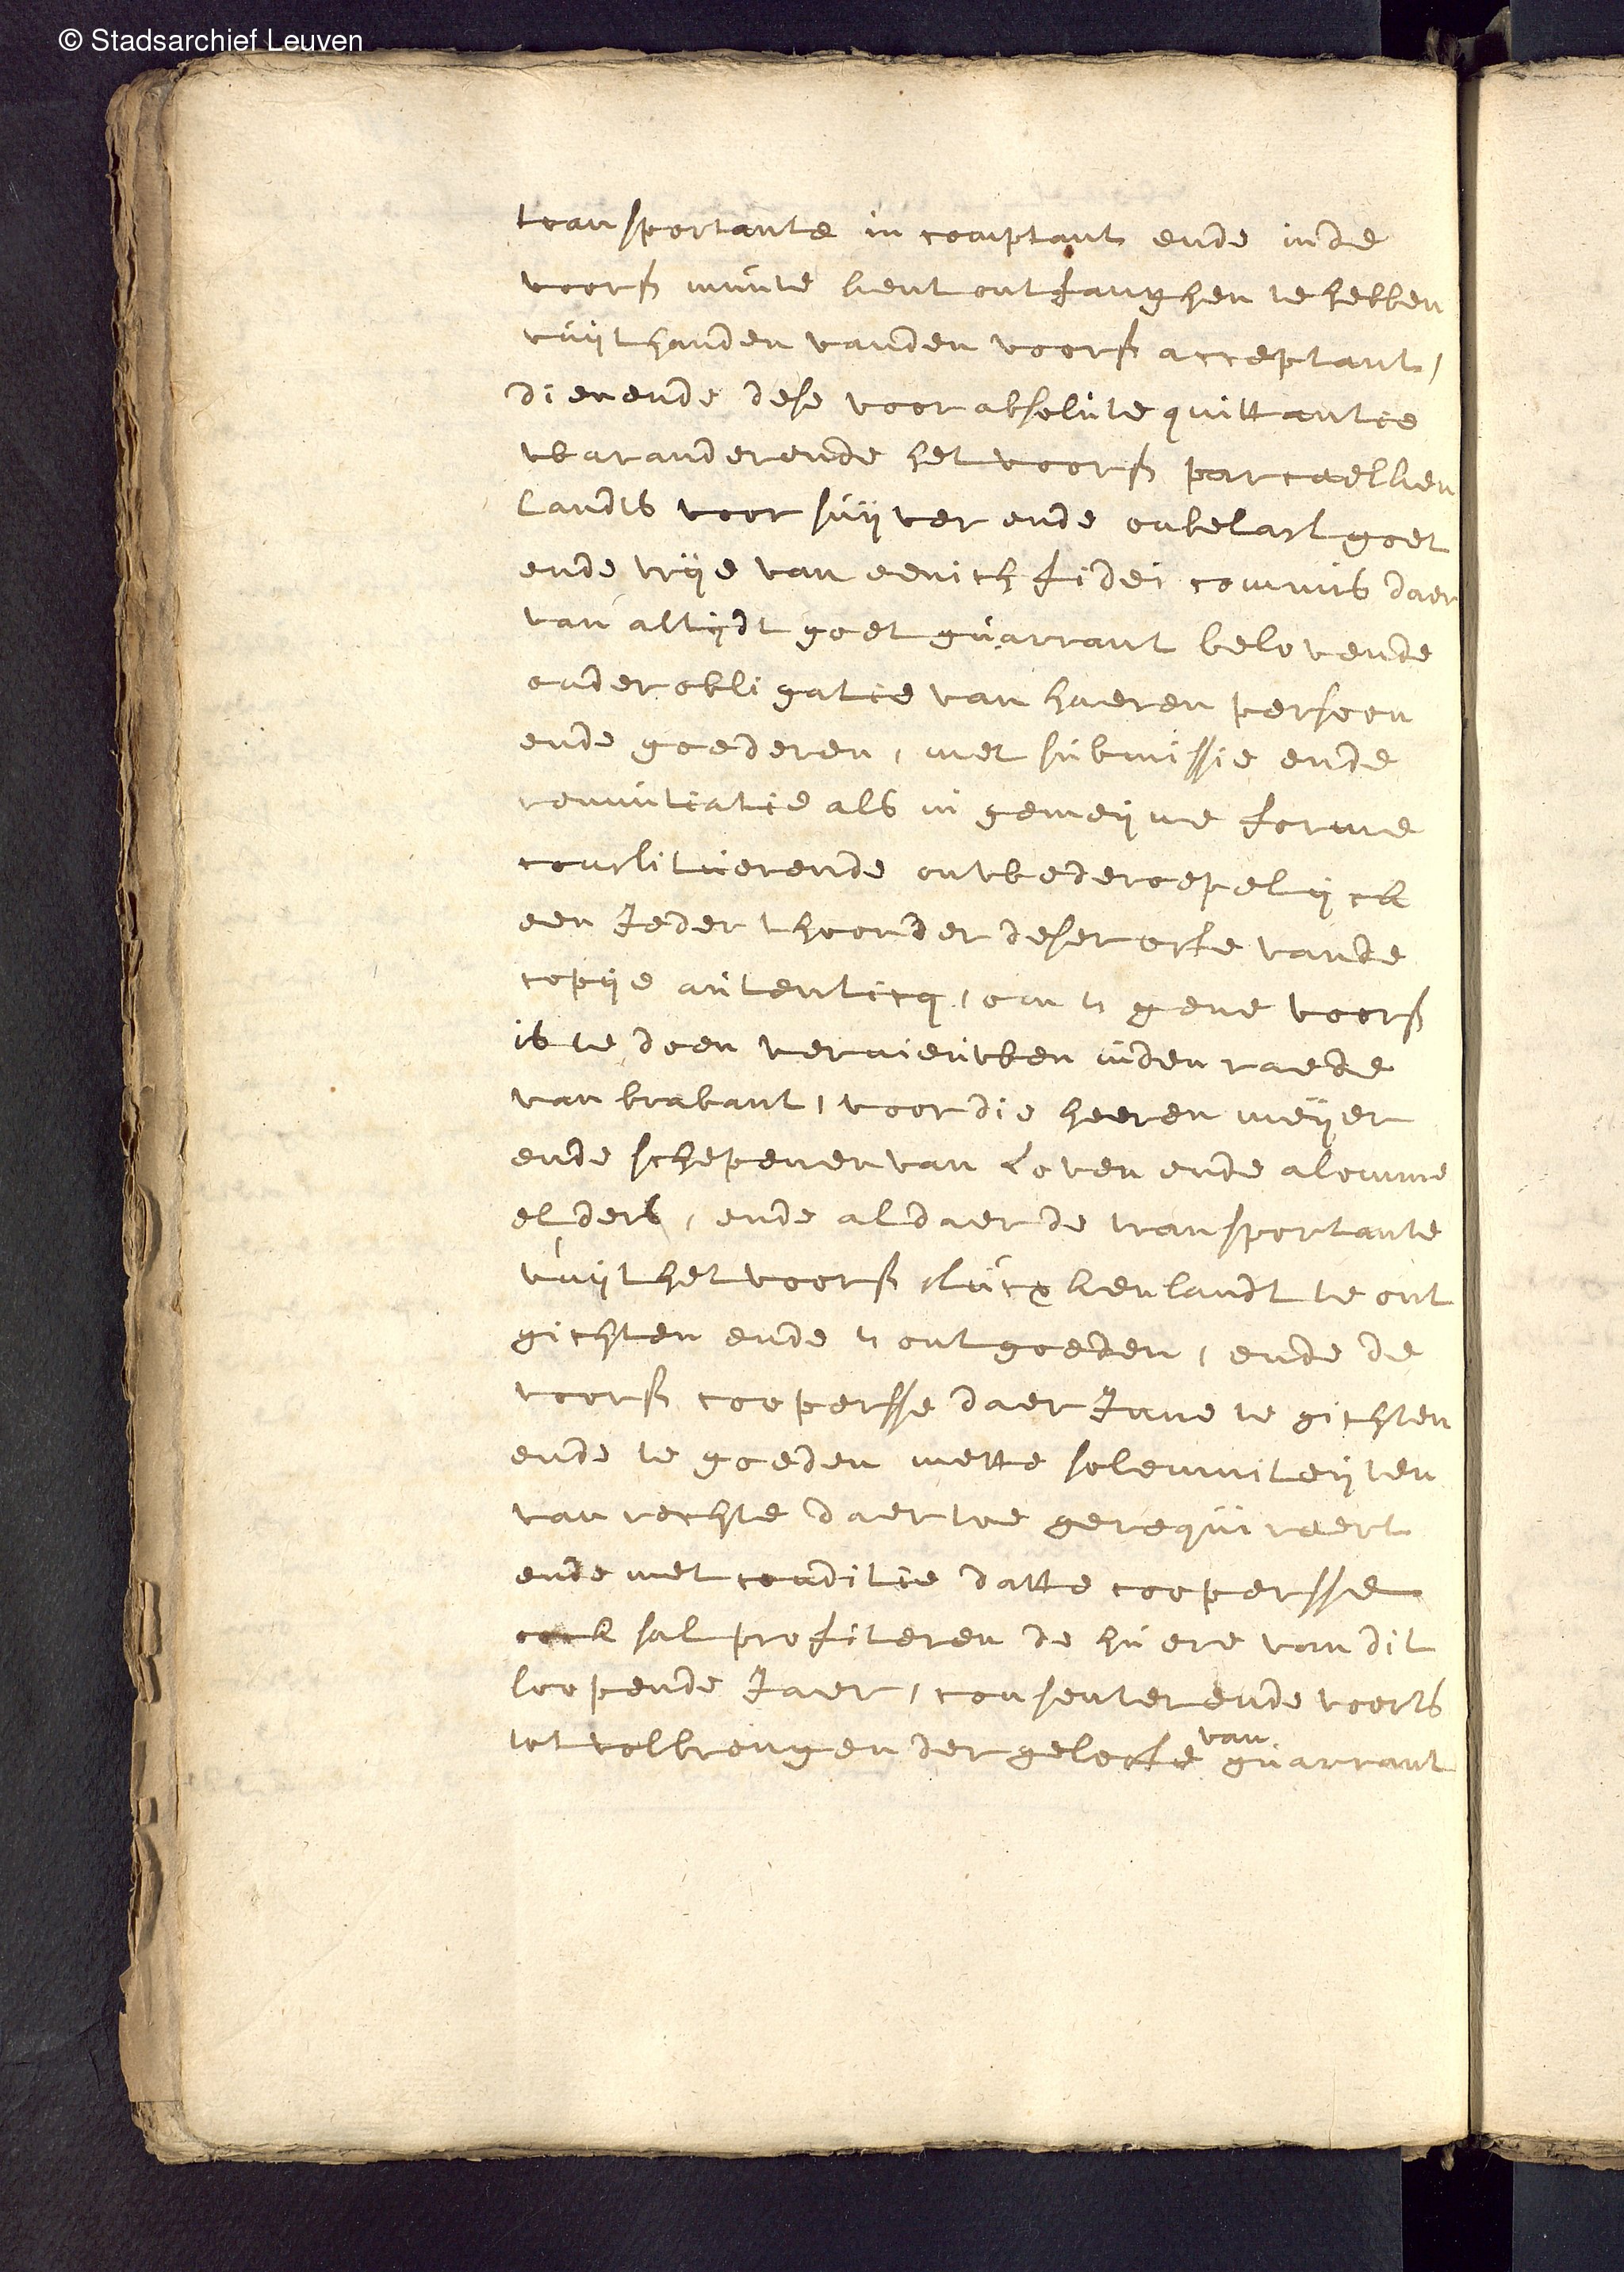 © Stadsarchief Leuven
transportante in comptant ende inde
voors munte kent ontfanghen te hebben
vuijt handen vanden voors acceptant,
dienende dese voor absolute quittantie
waranderende het voors parceelken
landts voor suijver ende onbelast goet
ende vrije van eenich fidei commis daer
van altijdt goet guarrant belovende
onder obligatie van haeren persoon
ende goederen, met submissie ende
renuntiatie als in gemeijne forme
constituerende onwederoepelijck
een Jeder thoonder deser ofte vande
copije autenticq, om tgene voors
is te doen vernieuwen inden raede
van brabant, voor die heeren meijer
ende schepenen van Loven ende alomme
elders, ende aldaer de transportante
vuijt het voors stucxken landt te ont
gichten ende tontgoeden, ende de
voors coopersse daer Inne te gichten
ende te goeden mette solemniteijten
van rechte daer toe gerequireert
ende met conditie datte coopersse
oock sal profiteren de huere van dit
loopende Jaer, consenterende voorts
tot volbrengen der gelofte van guarrant